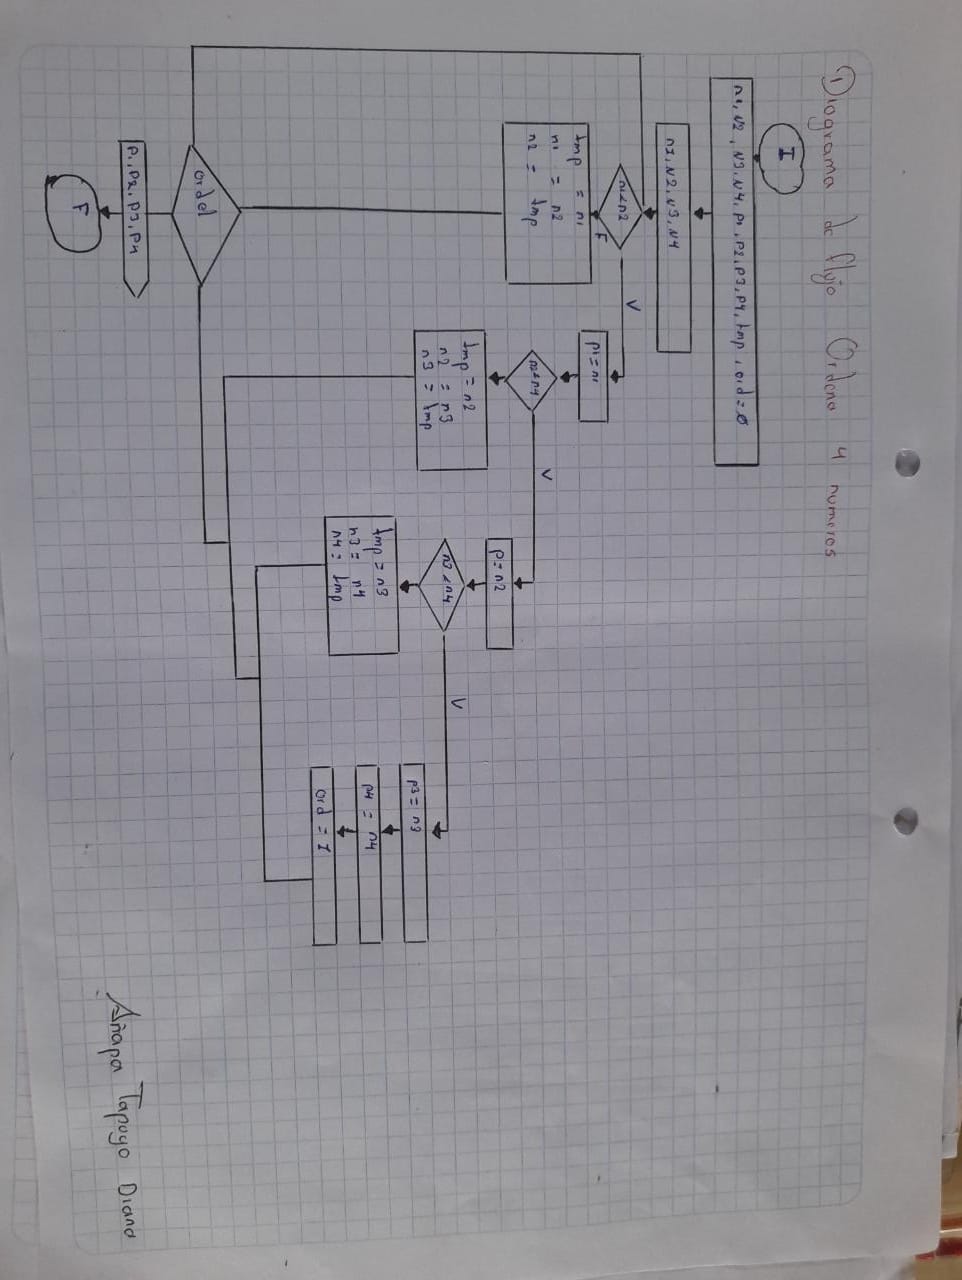 Diagrama de flujo Ordena 4 numeros
I
n1, N2, N3, N4, p1, p2, p3, p4, tmp, ord = 0
n1, N2, N3, N4
n1<n2
V
F
tmp = n1
n1 = n2
n2 = tmp
p1 = n1
V
tmp = n2
n2 = n3
n3 = tmp
p = n2
n3 < n4
V
tmp = n3
n3 = n4
n4 = tmp
p3 = n3
p4 = n4
ord = 1
P1, P2, P3, P4
F
Añapa Tapuyo Diana